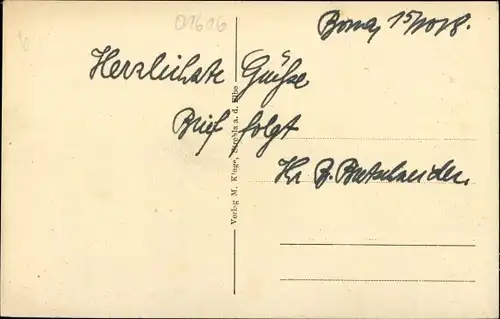 D1616
Borna, 15/10 18.
Herzlichste Grüße
Brief folgt
Bretschneider.
Verlag M. Kluge, Strehla a. d. Elbe